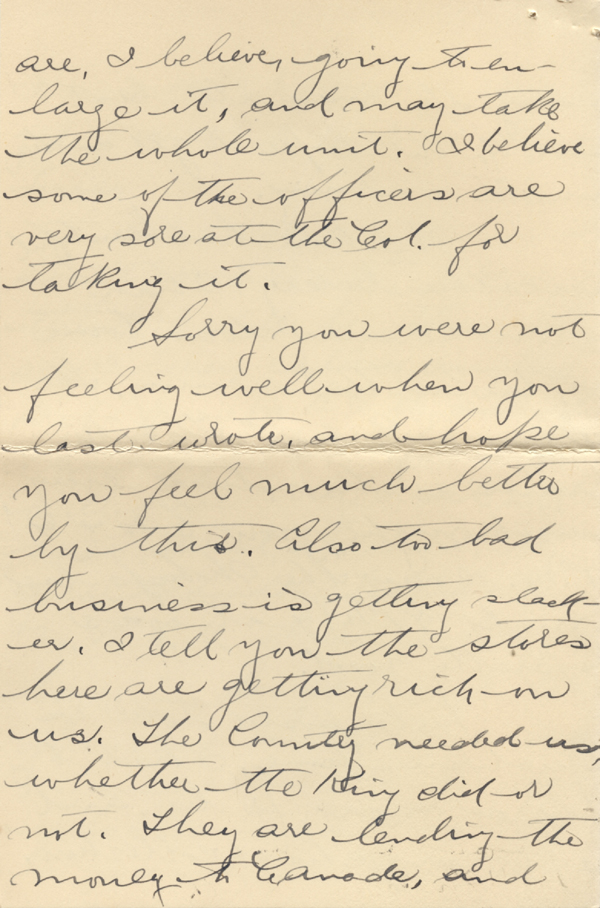 are, I believe, going to en-
large it, and may take
the whole unit. I believe
some of the officers are
very sore at the Col. for
taking it.
Sorry you were not
feeling well when you
last wrote, and hope
you feel much better
by this. Also too bad
business is getting slack-
er. I tell you the stores
here are getting rich on
us. The County needed us,
whether the King did or
not. They are lending the
money to Canada, and